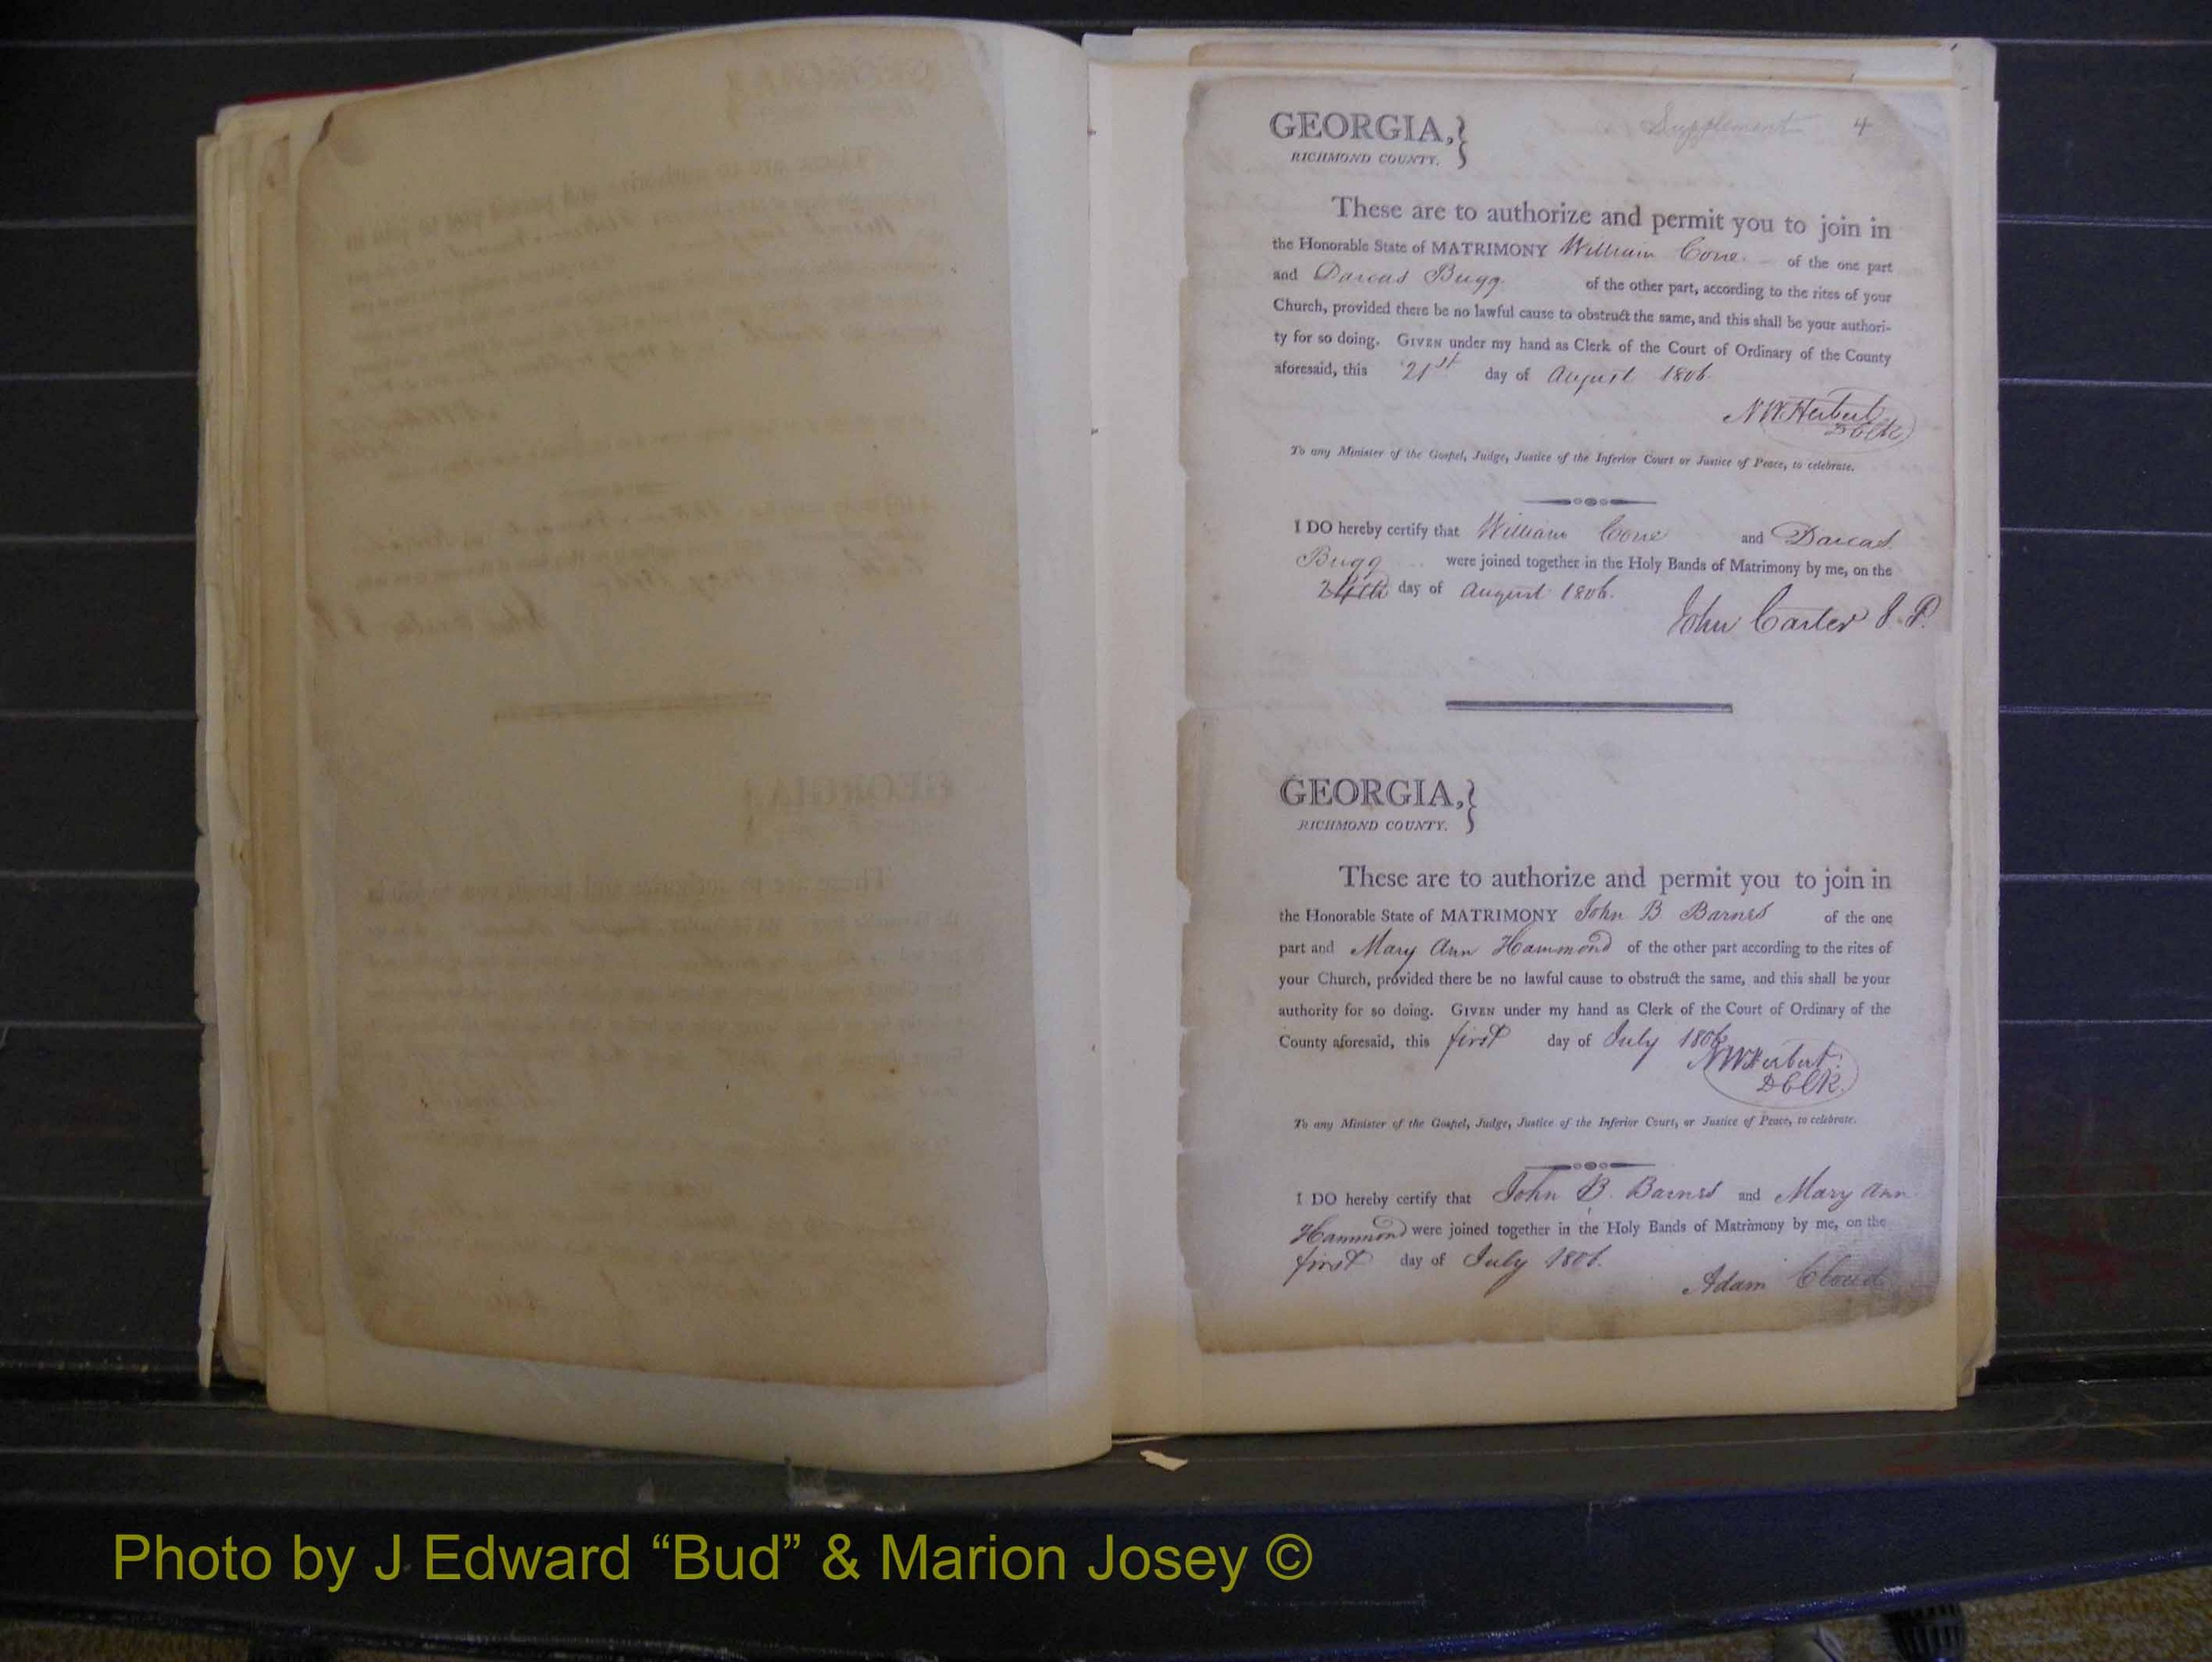 Supplement 4
GEORGIA,
RICHMOND COUNTY.
These are to authorize and permit you to join in
the Honorable State of MATRIMONY William Cone of the one part
and Darcas Bugg of the other part, according to the rites of your
Church, provided there be no lawful cause to obstruct the same, and this shall be your authori-
ty for so doing. GIVEN under my hand as Clerk of the Court of Ordinary of the County
aforesaid, this 21st day of August 1806.
N W Herbert
D Clk
To any Minister of the Gospel, Judge, Justice of the Inferior Court or Justice of Peace, to celebrate.
I DO hereby certify that William Cone and Darcas
Bugg were joined together in the Holy Bands of Matrimony by me, on the
24th day of August 1806.
John Carter J. P.
GEORGIA,
RICHMOND COUNTY.
These are to authorize and permit you to join in
the Honorable State of MATRIMONY John B. Barnes of the one
part and Mary Ann Hammond of the other part according to the rites of
your Church, provided there be no lawful cause to obstruct the same, and this shall be your
authority for so doing. GIVEN under my hand as Clerk of the Court of Ordinary of the
County aforesaid, this first day of July 1806
N W Herbert
D Clk.
To any Minister of the Gospel, Judge, Justice of the Inferior Court, or Justice of Peace, to celebrate.
I DO hereby certify that John B. Barnes and Mary Ann
Hammond were joined together in the Holy Bands of Matrimony by me, on the
first day of July 1806.
Adam Cloud
Photo by J Edward “Bud” & Marion Josey ©